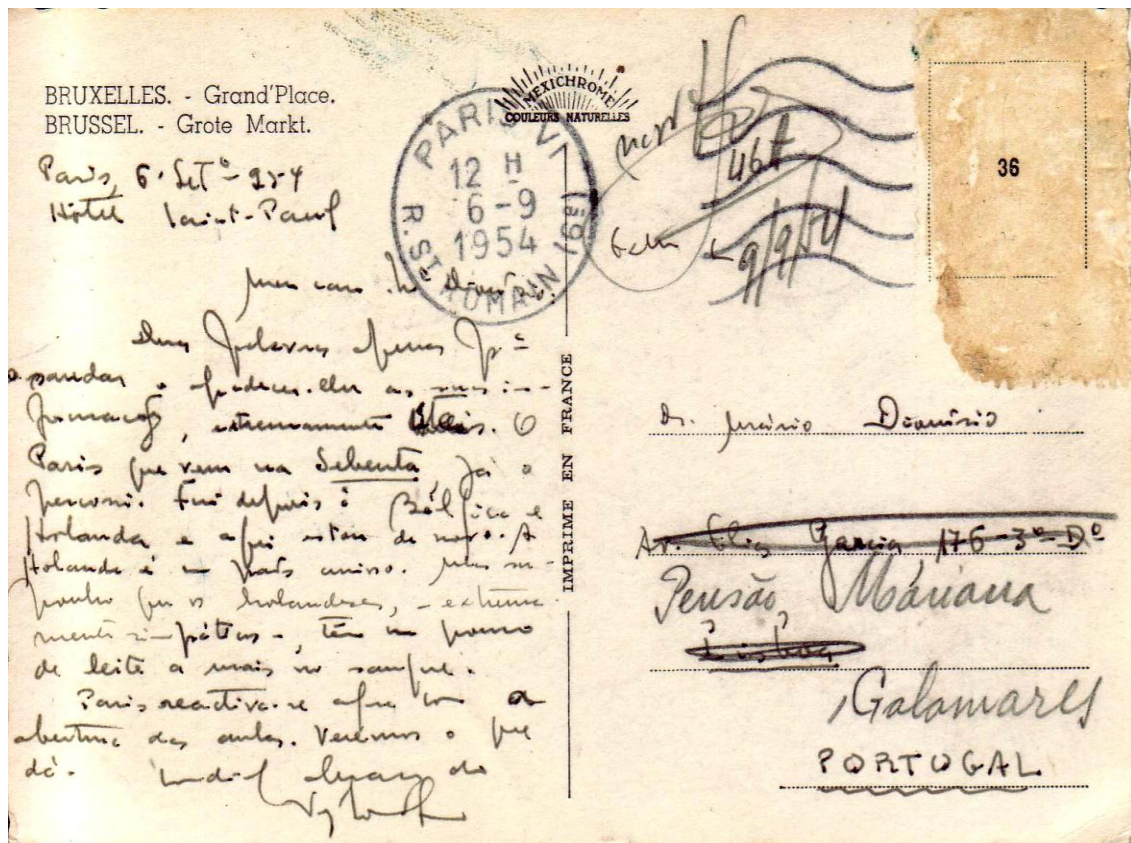 BRUXELLES. - Grand'Place.
BRUSSEL. - Grote Markt.
MEXICHROME
COULEURS NATURELLES
PARIS VI
12 H
6-9
1954
R. ST ROMAIN (69)
467
9/9/54
36
Paris, 6. Setº - 954
Hôtel Saint-Paul
Meu caro Dionísio:
Duas palavras apenas pª
o saudar e agradecer-lhe as suas in-
formações, extremamente úteis. O
Paris que vem na Sebenta, já o
percorri. Fui depois à Bélgica e
Holanda e aqui estou de novo. A
Holanda é um país
que os holandeses, - extrema-
mente simpáticos -, têm um pouco
de leite a mais no sangue.
Paris reactiva-se agora com a
abertura das aulas. Veremos o que
dá. Cordial abraço do
IMPRIME EN FRANCE
Dr. Mário Dionísio
Av. Elias Garcia 176-3º-Dº
Pensão Mariana
Lisboa
Galamares
PORTUGAL